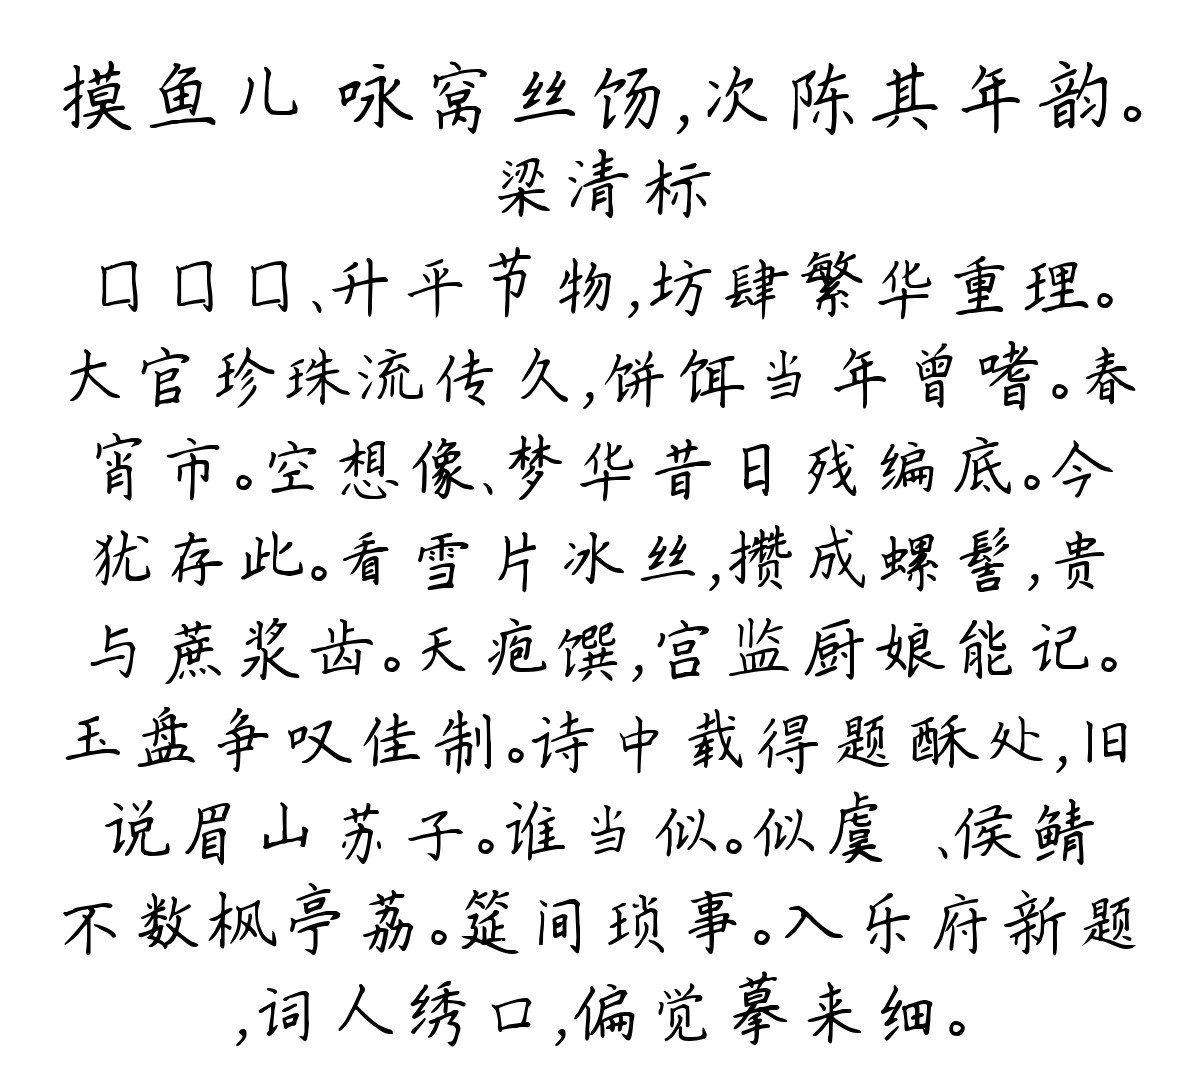 摸鱼儿 咏窝丝饧,次陈其年韵。
梁清标
口口口、升平节物,坊肆繁华重理。
大官珍珠流传久,饼饵当年曾嗜。春
宵市。空想像、梦华昔日残编底。今
犹存此。看雪片冰丝,攒成螺髻,贵
与蔗浆齿。天疱馔,宫监厨娘能记。
玉盘争叹佳制。诗中载得题酥处,旧
说眉山苏子。谁当似。似虞 、侯鲭
不数枫亭荔。筵间琐事。入乐府新题
,词人绣口,偏觉摹来细。